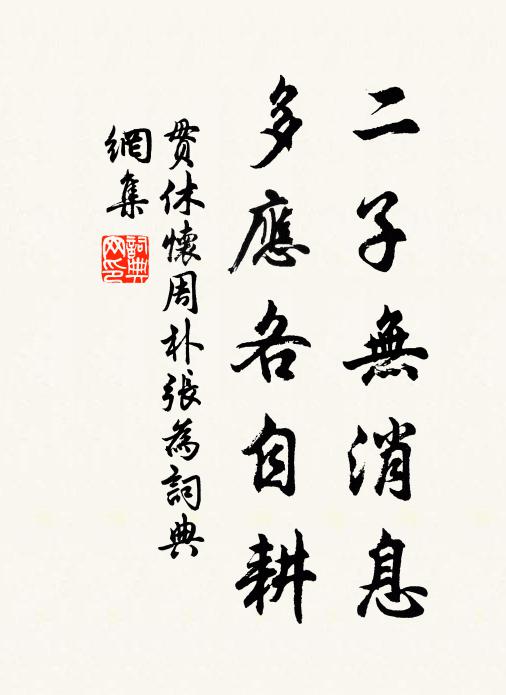 二子無消息
多應各自耕
貫休懷周朴張為詞典
網集
詞典
网印